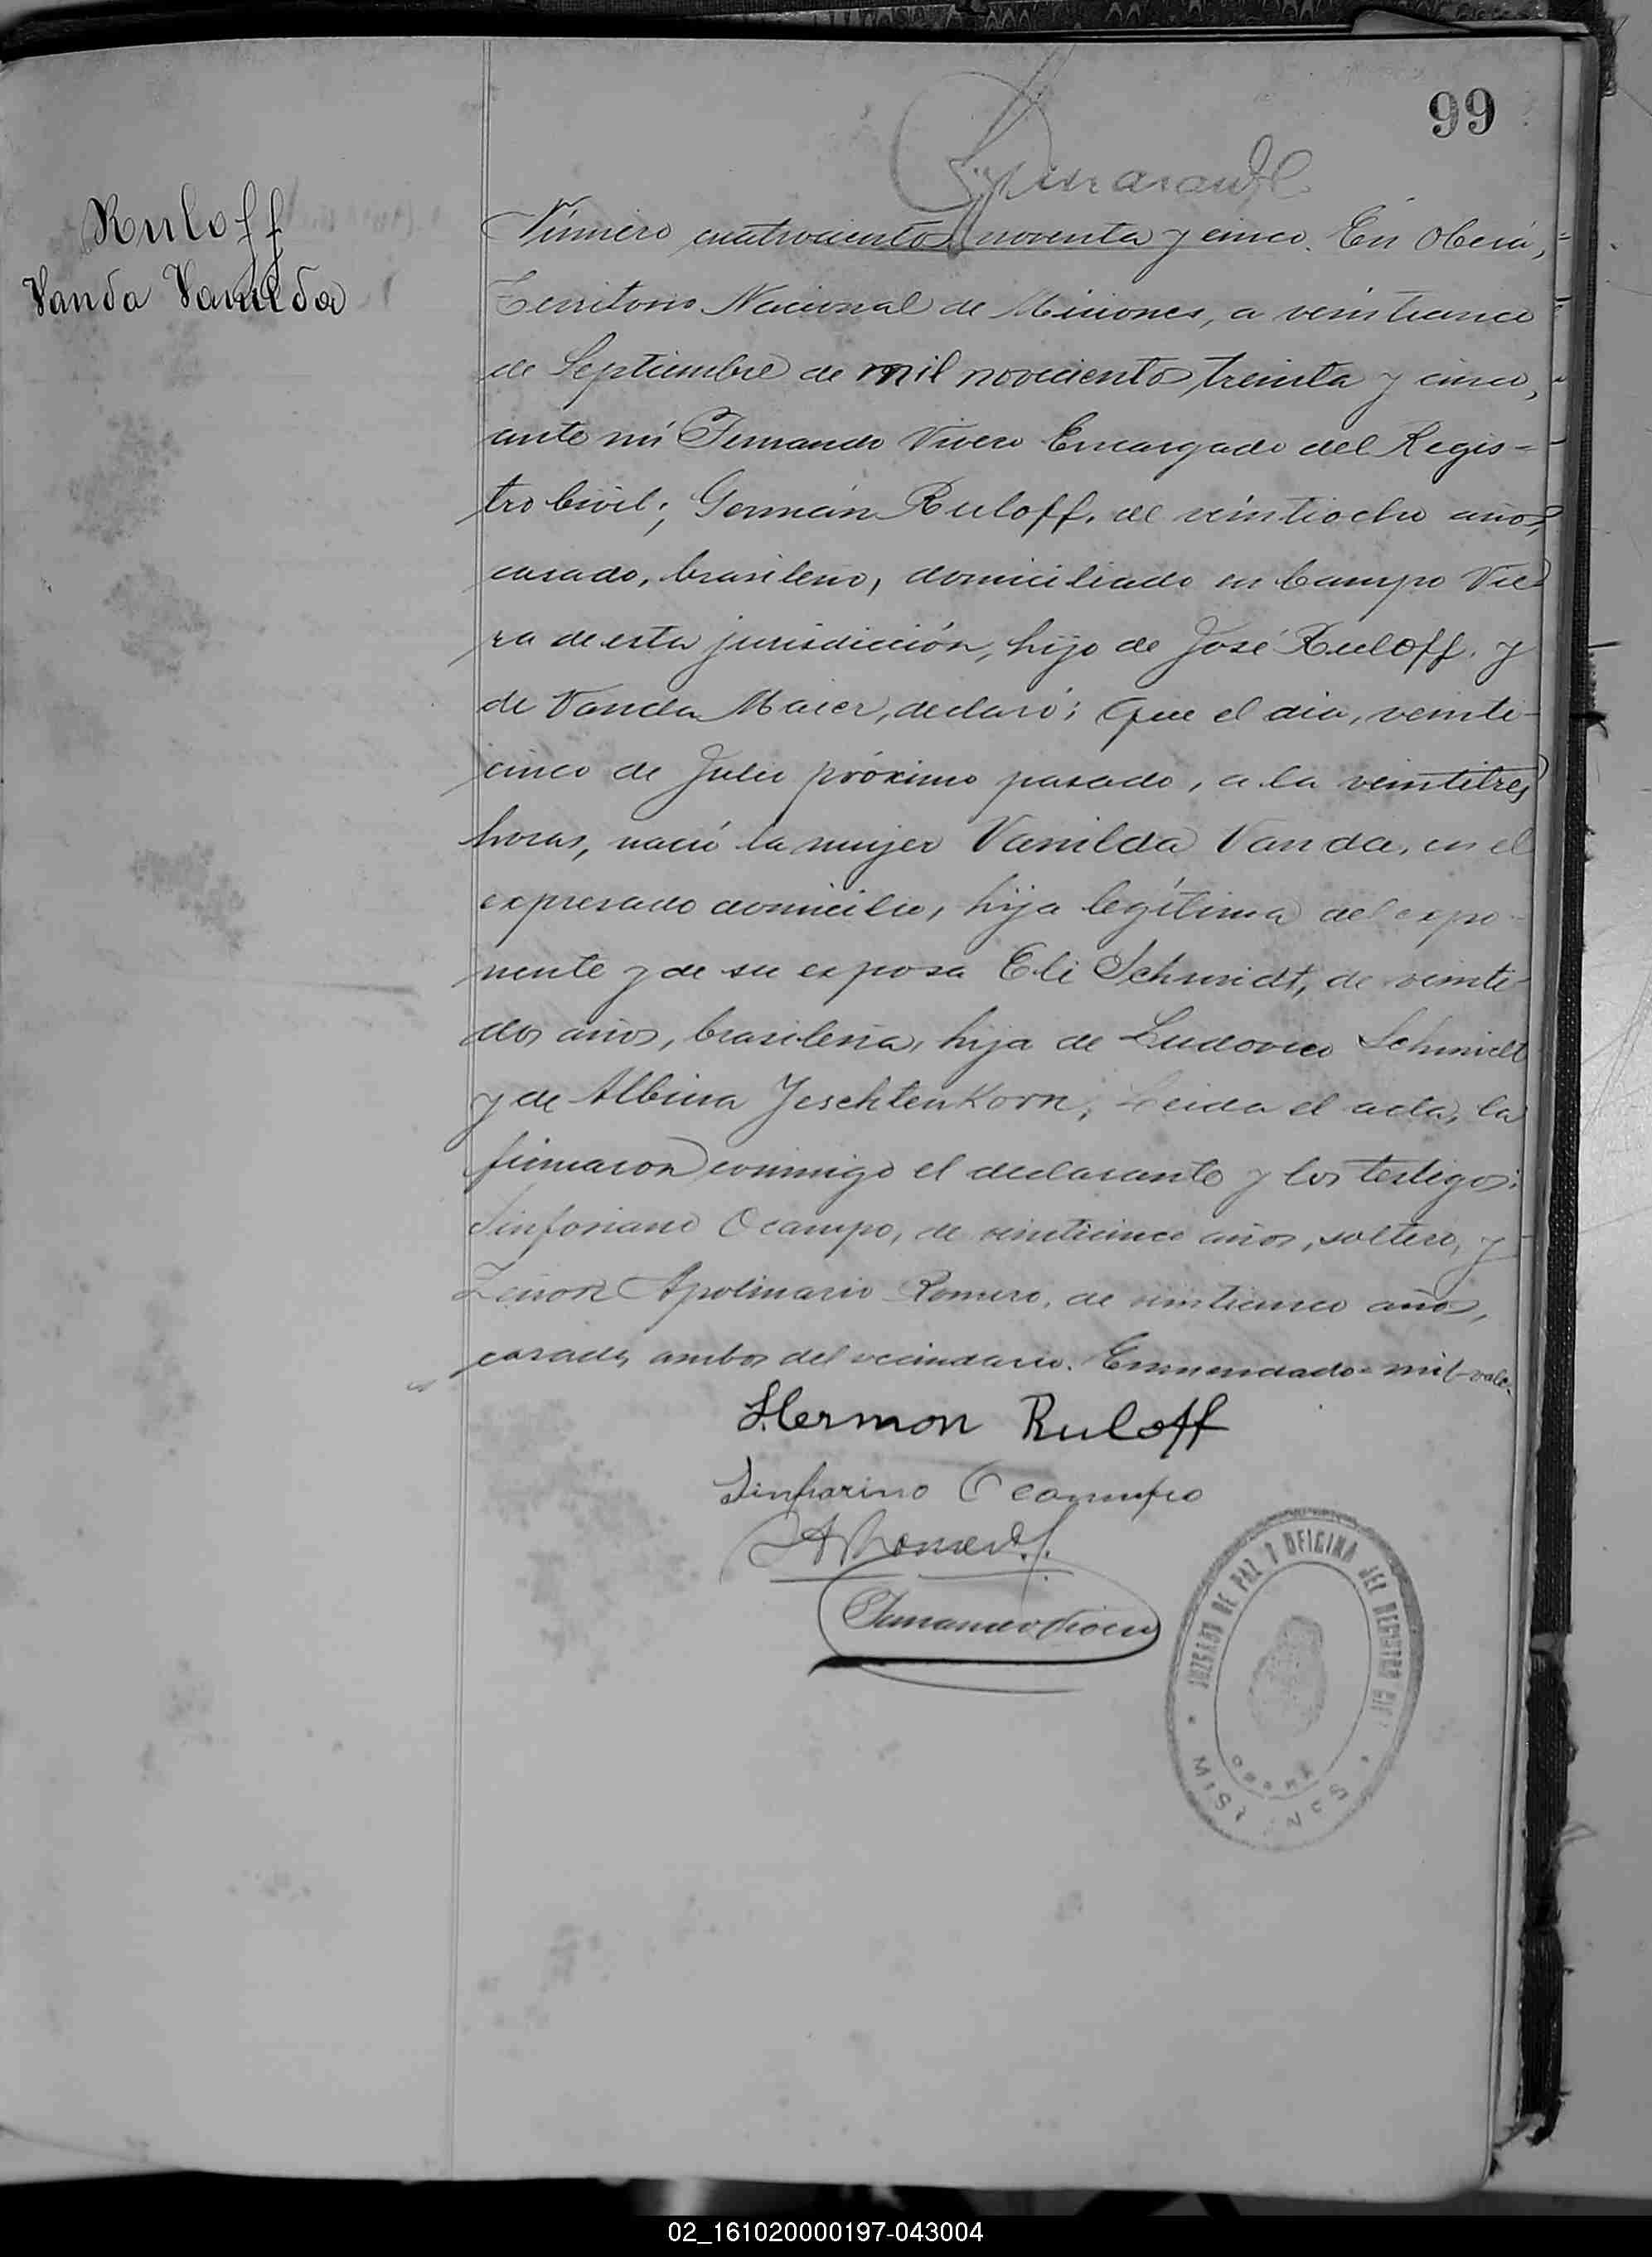 99
Ruloff
Vanda Vanilda
Número cuatrocientos noventa y cinco. En Oberá,
Territorio Nacional de Misiones, a veinticinco
de Septiembre de mil novecientos treinta y cinco,
ante mí Fernando Vivero Encargado del Regis-
tro Civil; Germán Ruloff, de veintiocho años,
casado, brasileno, domiciliado en Campo Vie
ra de esta jurisdicción, hijo de José Ruloff, y
de Vanda Maier, declaró: Que el dia, veinti-
cinco de Julio próximo pasado, a la veintitres
horas, nació la mujer Vanilda Vanda, en el
expresado domicilio, hija legítima del expo-
nente y de su esposa Eli Schmidt, de veinti-
dos años, brasilena, hija de Ludovico Schmidt
y de Albina Jeschtenkorn; Leida el acta, la
firmaron conmigo el declarante y los testigos:
Sinforiano Ocampo, de veinticinco años, soltero, y
Zenon Apolinario Romero, de veinticinco años,
casado, ambos del vecindario. Enmendado=mil-vale.
Hermon Ruloff
Sinforino Ocampo
Fernando Vivero
JUZGADO DE PAZ Y OFICINA DEL REGISTRO CIVIL
OBERÁ
MISIONES
02_161020000197-043004